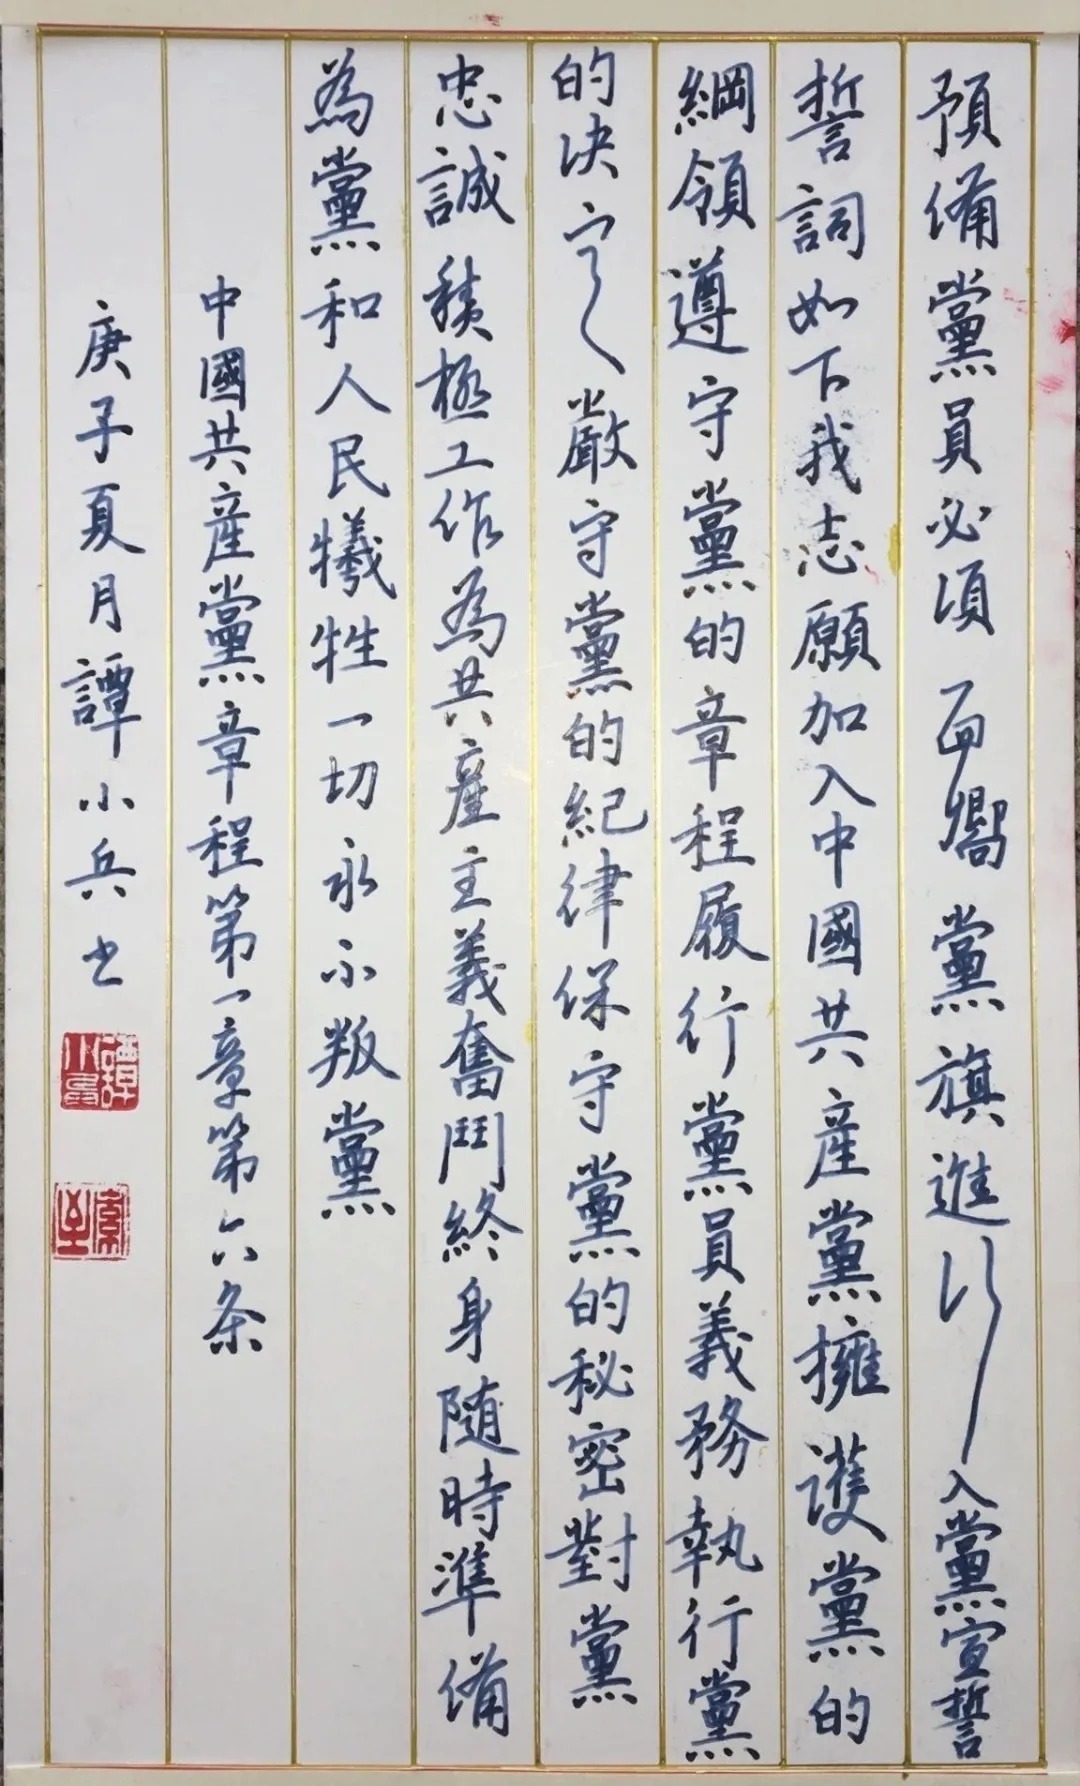 預備黨員必須面嚮黨旗進行入黨宣誓
誓詞如下我志願加入中國共産黨擁護黨的
綱領遵守黨的章程履行黨員義務執行黨
的决定嚴守黨的紀律保守黨的秘密對黨
忠誠積極工作為共産主義奮鬥終身隨時準備
為黨和人民犧牲一切永不叛黨
中國共産黨章程第一章第六条
庚子夏月譚小兵书
譚小兵